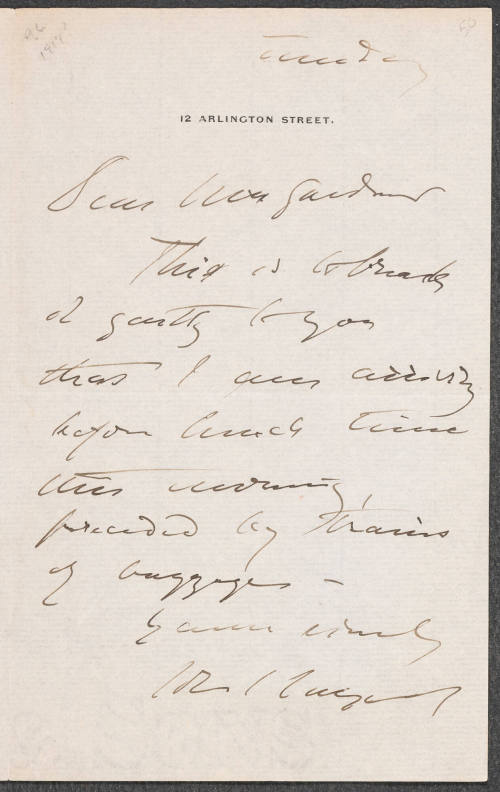 Tuesday
12 ARLINGTON STREET.
Dear Mrs Gardner
This is to break
it gently to you
that I am arriving
before lunch time
this morning,
preceded by trains
of baggages –
Yours sincerely
John S Sargent